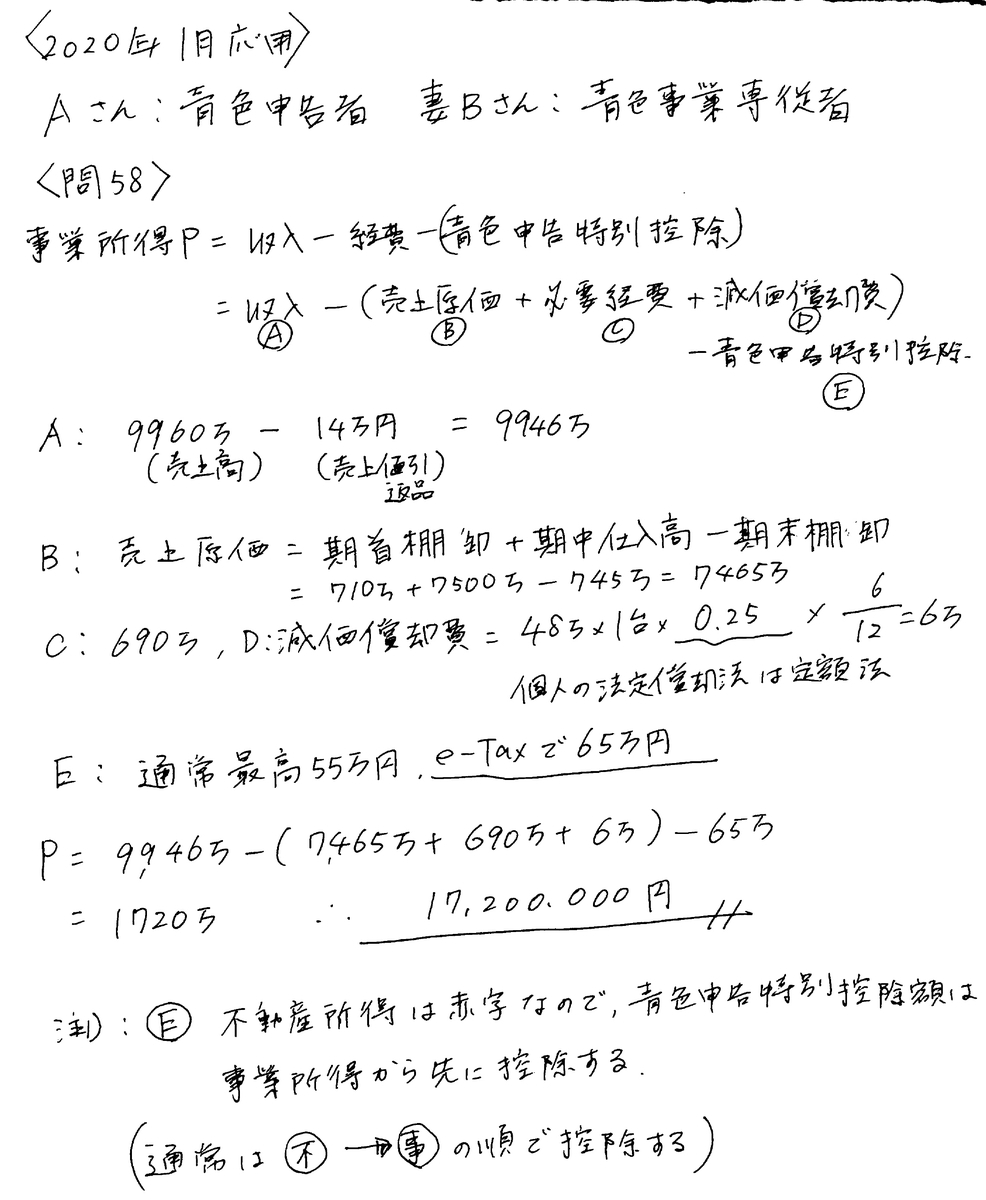 〈2020年1月応用〉
Aさん：青色申告者　妻Bさん：青色事業専従者
〈問58〉
事業所得P = 収入 − 経費 −(青色申告特別控除)
= 収入 − (売上原価 + 必要経費 + 減価償却費)
Ⓐ Ⓑ Ⓒ Ⓓ
− 青色申告特別控除.
Ⓔ
A： 9960万 − 14万円 = 9946万
(売上高) (売上値引)
返品
B： 売上原価 = 期首棚卸 + 期中仕入高 − 期末棚卸
= 710万 + 7500万 − 745万 = 7465万
C： 690万, D:減価償却費 = 48万×1台× 0.25 × 6/12 = 6万
個人の法定償却法は定額法
E： 通常最高55万円. e-Taxで65万円
P = 9,946万 − ( 7,465万 + 690万 + 6万 ) − 65万
= 1720万 ∴ 17,200.000円
注1)：Ⓔ 不動産所得は赤字なので, 青色申告特別控除額は
事業所得から先に控除する.
(通常は㊀不→事の順で控除する)